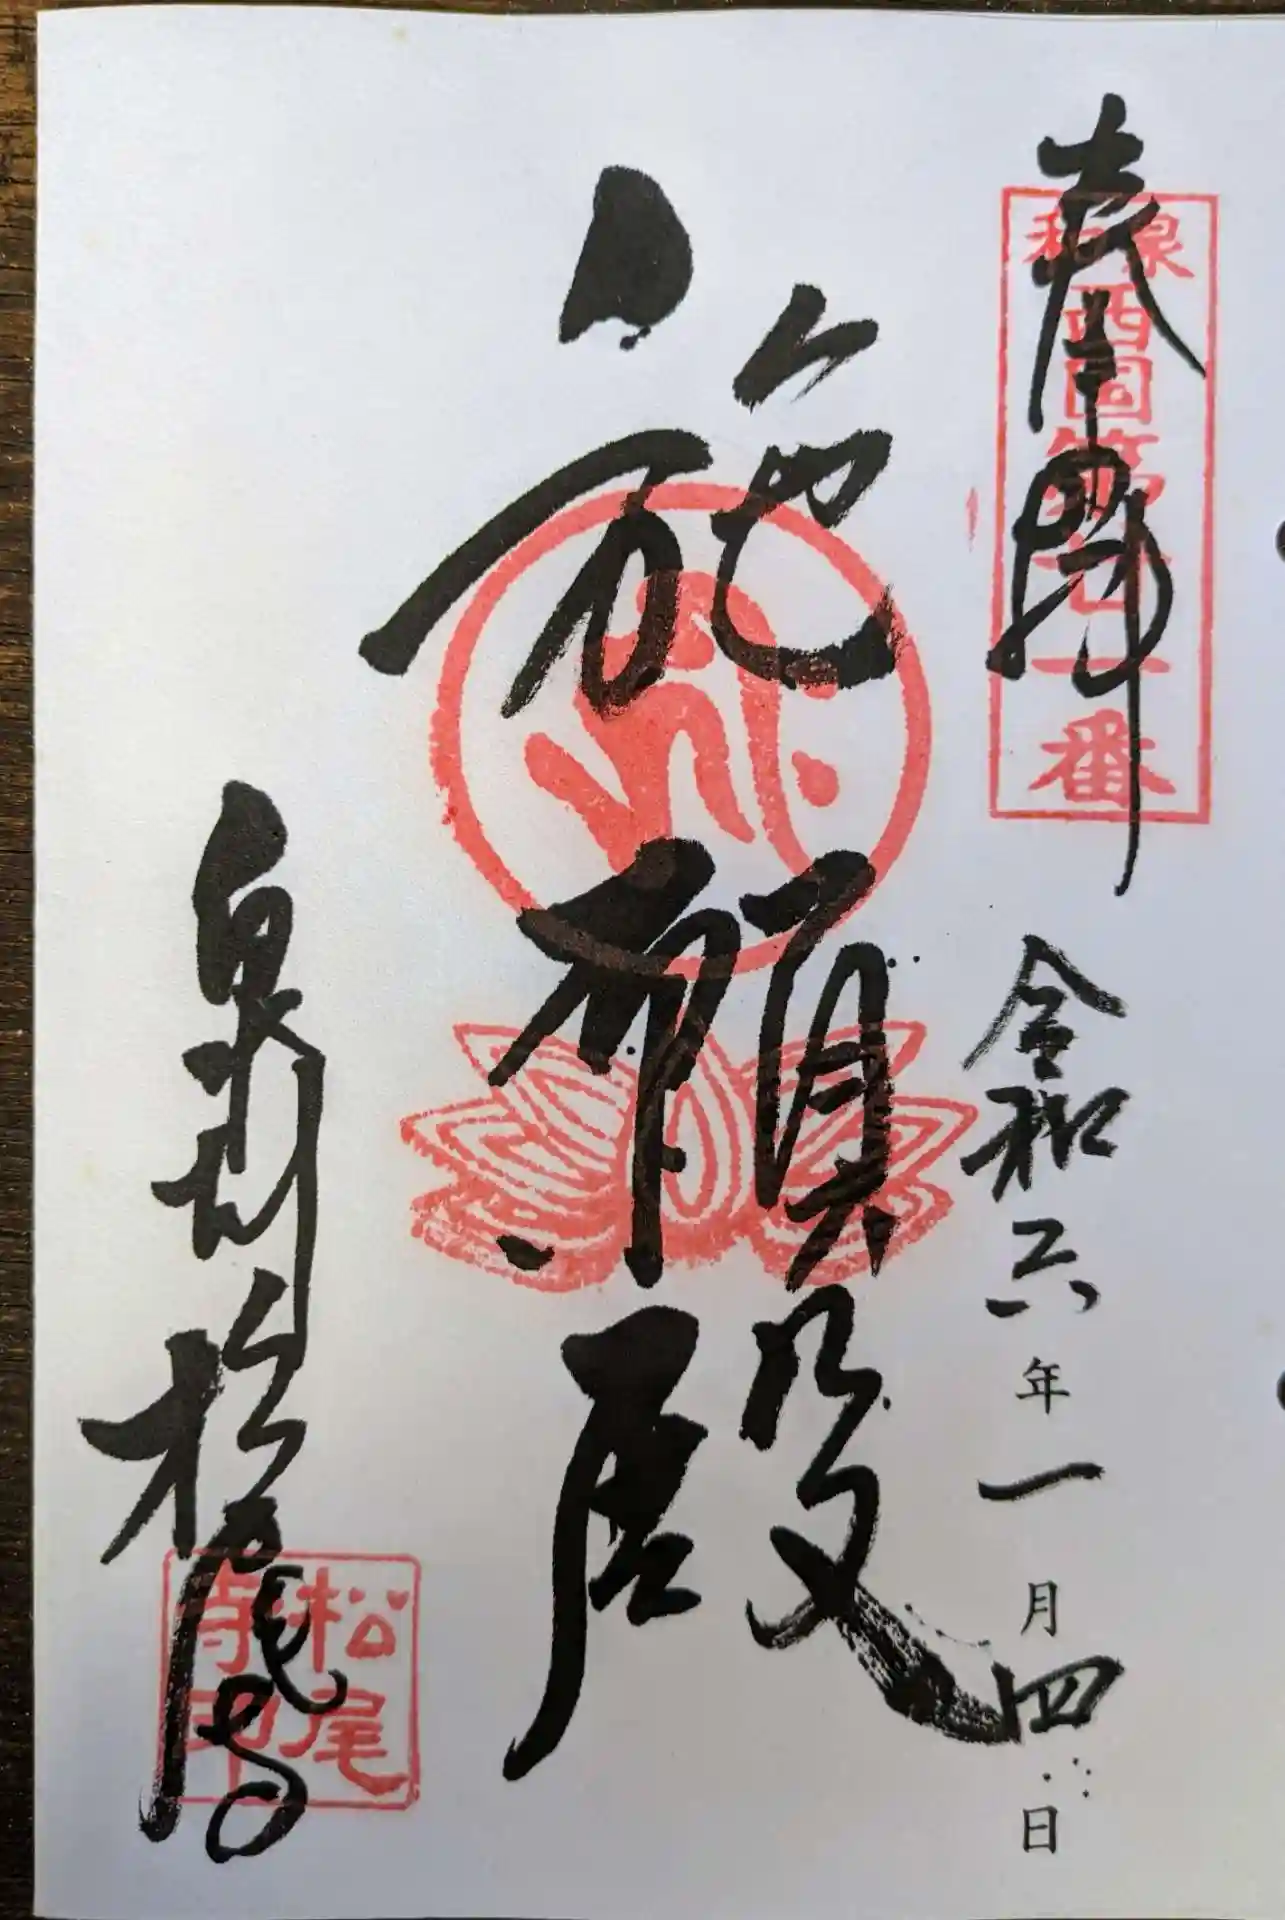 奉拝
和泉
西国第
一番
令和六年一月四日
施願殿
泉州松尾寺
松尾
寺印